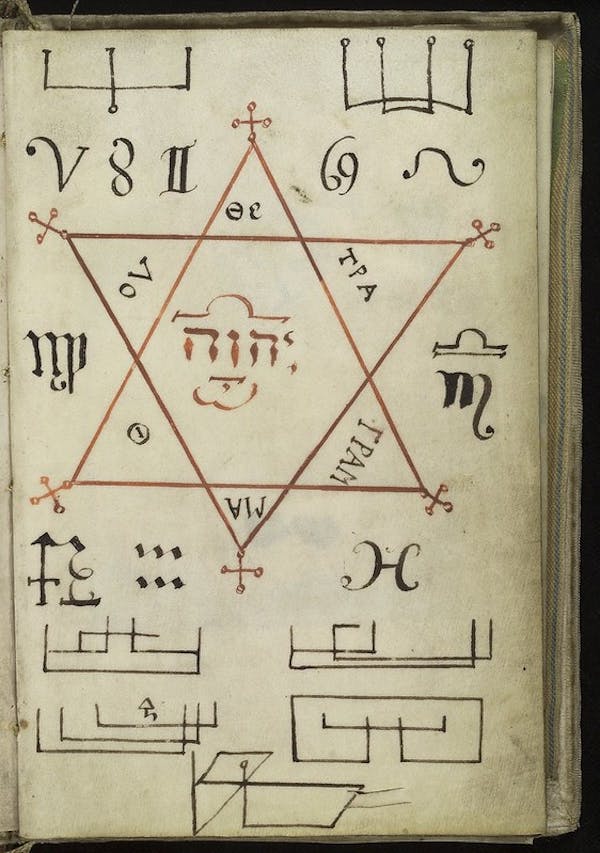 ♈ ♉ ♊ ♋ ♌
Θε
ΤΡΑ
יהוה
♍ ♎
♏
ΓΡΑΜ
ΜΑ
♐ ♑ ♒ ♓